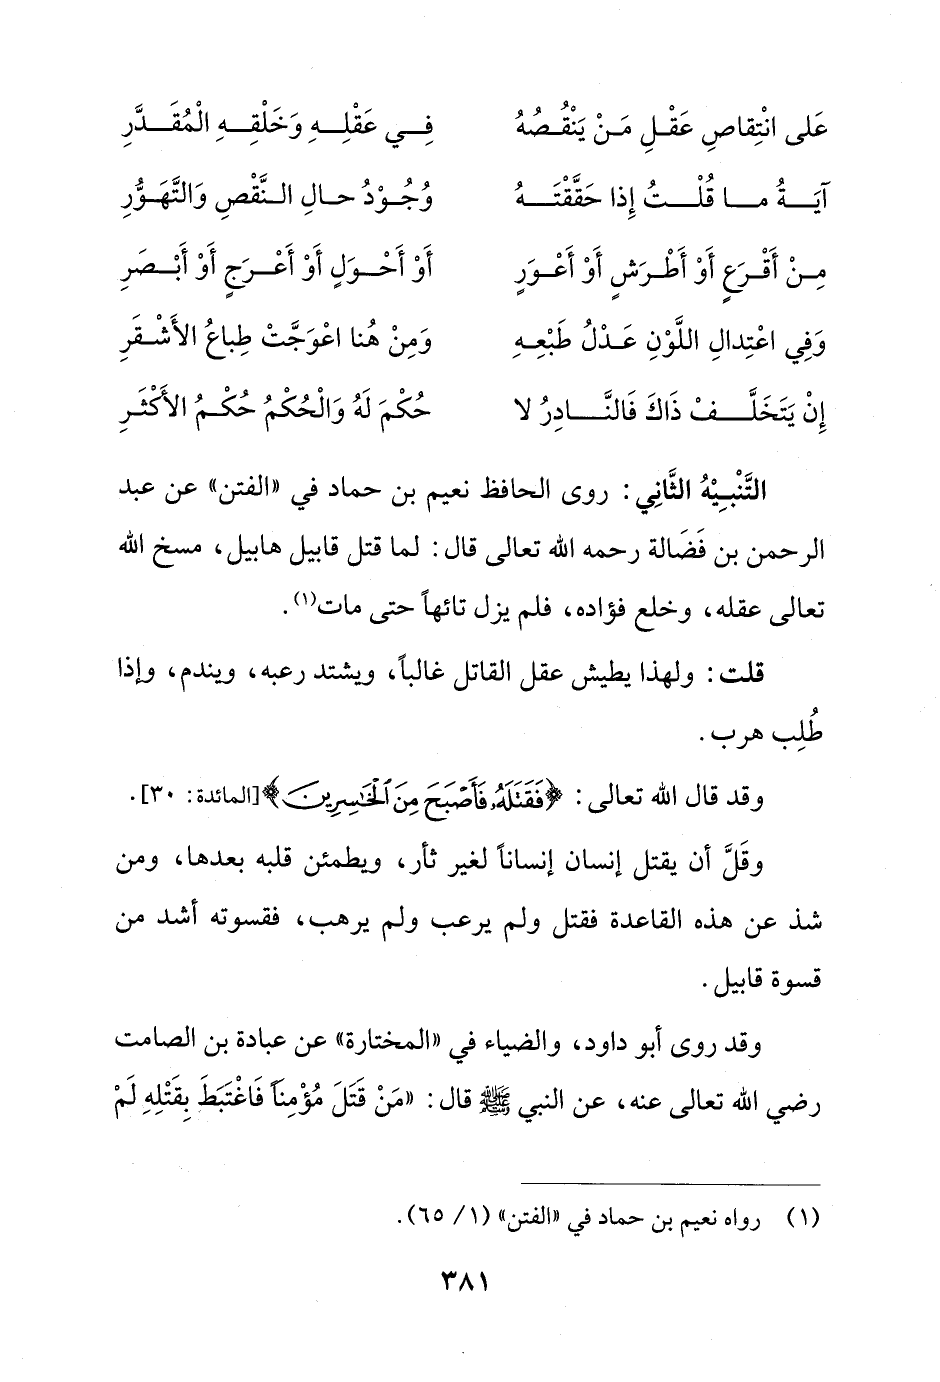 عَلى انْتِقاصِ عَقْلِ مَنْ يَنْقُصُهُ فِي عَقْلِهِ وَخَلْقِهِ الْمُقَدَّرِ
آيَةُ ما قُلْتُ إِذا حَقَّقْتَهُ وُجُوْدُ حالِ النَّقْصِ وَالتَّهَوُّرِ
مِنْ أَقْرَعٍ أَوْ أَطْرَشٍ أَوْ أَعْوَرٍ أَوْ أَحْوَلٍ أَوْ أَعْرَجٍ أَوْ أَبْصَرِ
وَفِي اعْتِدالِ اللَّوْنِ عَدْلُ طَبْعِهِ وَمِنْ هُنا اعْوَجَّتْ طِباعُ الأَشْقَرِ
إِنْ يَتَخَلَّفْ ذَاكَ فَالنَّادِرُ لا حُكْمَ لَهُ وَالْحُكْمُ حُكْمُ الأَكْثَرِ
التَّنْبِيْهُ الثَّانِي: روى الحافظ نعيم بن حماد في «الفتن» عن عبد
الرحمن بن فَضَالة رحمه الله تعالى قال: لما قتل قابيل هابيل، مسخ الله
تعالى عقله، وخلع فؤاده، فلم يزل تائهاً حتى مات(١).
قلت: ولهذا يطيش عقل القاتل غالباً، ويشتد رعبه، ويندم، وإذا
طُلِب هرب.
وقد قال الله تعالى: ﴿فَقَتَلَهُۥ فَأَصْبَحَ مِنَ ٱلْخَٰسِرِينَ﴾[المائدة: ٣٠].
وقَلَّ أن يقتل إنسان إنساناً لغير ثأر، ويطمئن قلبه بعدها، ومن
شذ عن هذه القاعدة فقتل ولم يرعب ولم يرهب، فقسوته أشد من
قسوة قابيل.
وقد روى أبو داود، والضياء في «المختارة» عن عبادة بن الصامت
رضي الله تعالى عنه، عن النبي ﷺ قال: «مَنْ قَتَلَ مُؤْمِناً فَاغْتَبَطَ بِقَتْلِهِ لَمْ
(١) رواه نعيم بن حماد في «الفتن» (١/ ٦٥).
٣٨١